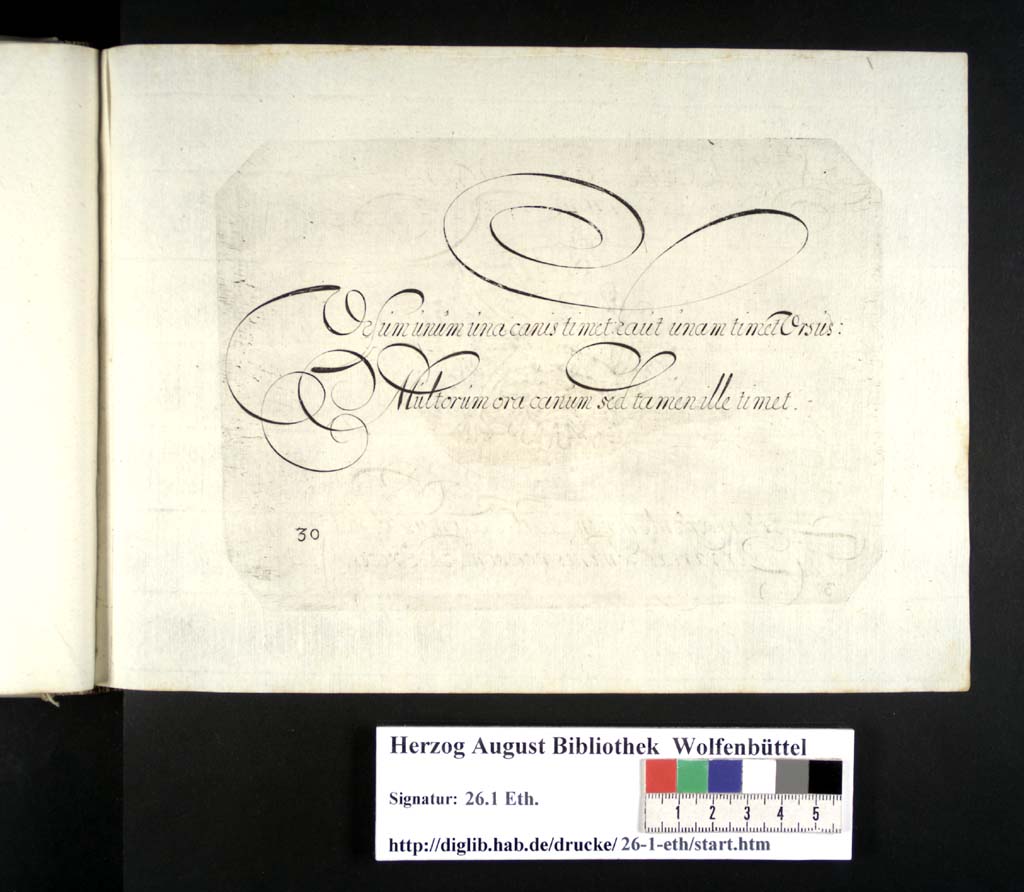 Vrsum unum una canis timet: aut unam timet Vrsus:
Multorum ora canum sed tamen ille timet.
30
Herzog August Bibliothek Wolfenbüttel
Signatur: 26.1 Eth.
1 2 3 4 5
http://diglib.hab.de/drucke/ 26-1-eth/start.htm